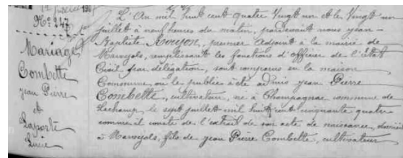 Mariage
Combette
Jean Pierre
et
Laporte
L'An mil huit cent quatre vingt onze et le vingt un
juillet à neuf heures du matin, pardevant nous Jean-
Baptiste premier adjoint à la mairie de
Marvejols, remplissant les fonctions d'officier de l'état
Civil par délégation, sont comparus en la maison
Commune, où le public a été admis Jean Pierre
Combette, cultivateur, né à Champagnac, commune de
le sept juillet mil huit cent cinquante quatre
comme il conste de l'extrait de son acte de naissance, domicilié
à Marvejols, fils de Jean Pierre Combette, cultivateur